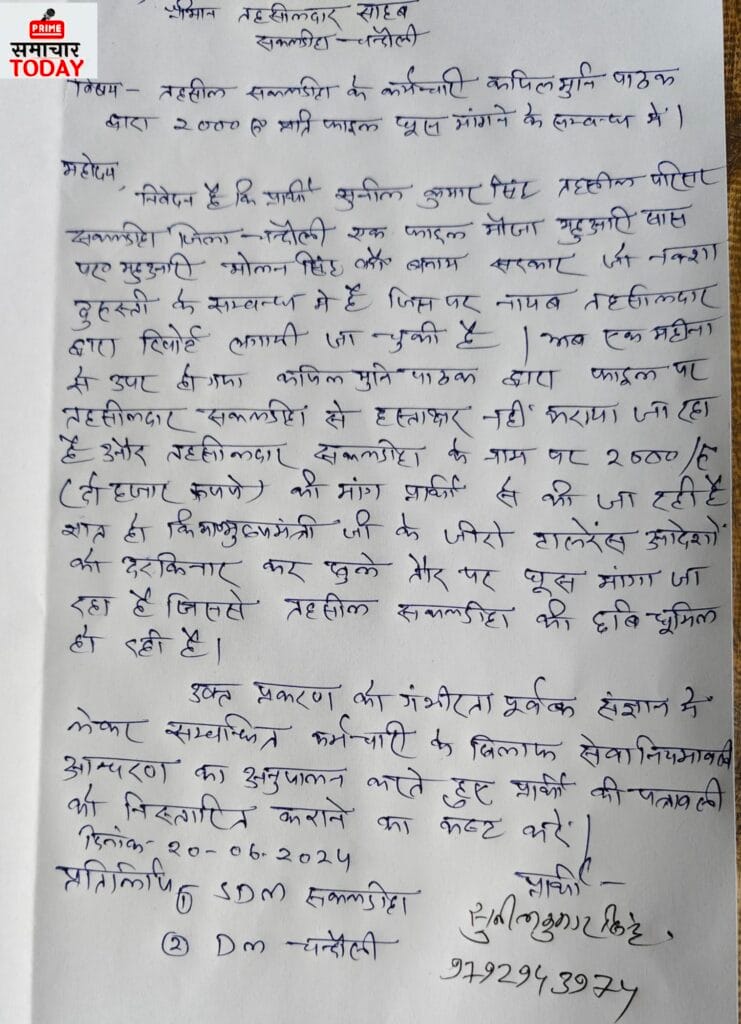 PRIME
समाचार
TODAY
श्रीमान तहसीलदार साहब
सकलडीहा - चन्दौली
विषय - तहसील सकलडीहा के कर्मचारी कपिल मुनि पाठक
द्वारा 2000 रु प्रति फाइल घूस मांगने के सम्बन्ध में।
महोदय,
निवेदन है कि प्रार्थी सुनील कुमार सिंह तहसील परिसर
सकलडीहा जिला - चन्दौली एक फाइल मौजा महुआरी खास
पर0 महुआरी मोलन सिंह बनाम सरकार जो नक्शा
दुरुस्ती के सम्बन्ध मे है जिस पर नायब तहसीलदार
द्वारा रिपोर्ट लगायी जा चुकी है। अब एक महीना
से उपर हो गया कपिल मुनि पाठक द्वारा फाइल पर
तहसीलदार सकलडीहा से हस्ताक्षर नहीं कराया जा रहा
है और तहसीलदार सकलडीहा के नाम पर 2000/रु
(दो हजार रूपये) की मांग प्रार्थी से की जा रही है
ज्ञात हो कि मा० मुख्यमंत्री जी के जीरो टालरेंस आदेशों
को दरकिनार कर खुले तौर पर घूस मांगा जा
रहा है जिससे तहसील सकलडीहा की छवि धूमिल
हो रही है।
उक्त प्रकरण को गंभीरता पूर्वक संज्ञान में
लेकर सम्बन्धित कर्मचारी के खिलाफ सेवा नियमावली
आचरण का अनुपालन करते हुए प्रार्थी की पत्रावली
को निस्तारित कराने का कष्ट करें।
दिनांक- 20-06-2024
प्रतिलिपि ① SDM सकलडीहा
② DM चन्दौली
प्रार्थी -
सुनील कुमार सिंह
9792943974